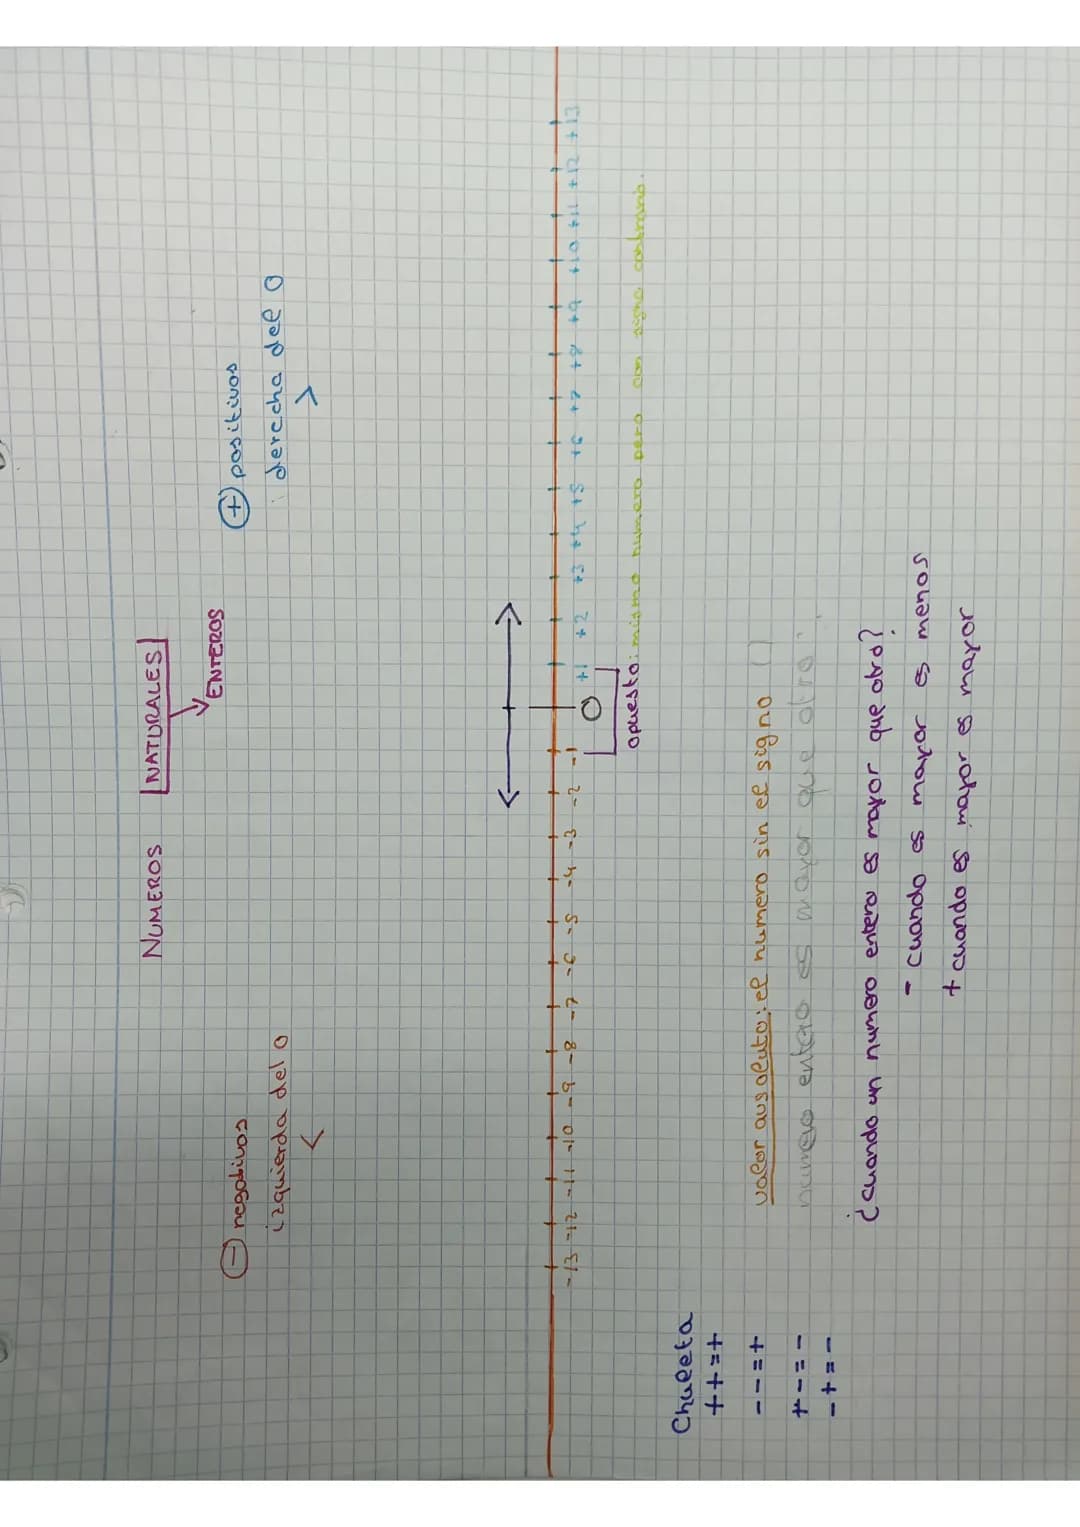 NUMEROS NATURALES
ENTEROS
- negativos
izquierda del 0
<
+ positivos
derecha del 0
>
-13 -12 -11 -10 -9 -8 -7 -6 -5 -4 -3 -2 -1 0 +1 +2 +3 +4 +5 +6 +7 +8 +9 +10 +11 +12 +13
opuesto: mismo numero pero con signo contrario.
Chuleta
++=+
--=+
+-=-
-+=-
valor ausoluto: el numero sin el signo ||
numero entero es mayor que otro
¿cuando un numero entero es mayor que otro?
- cuando es mayor es menos
+ cuando es mayor es mayor